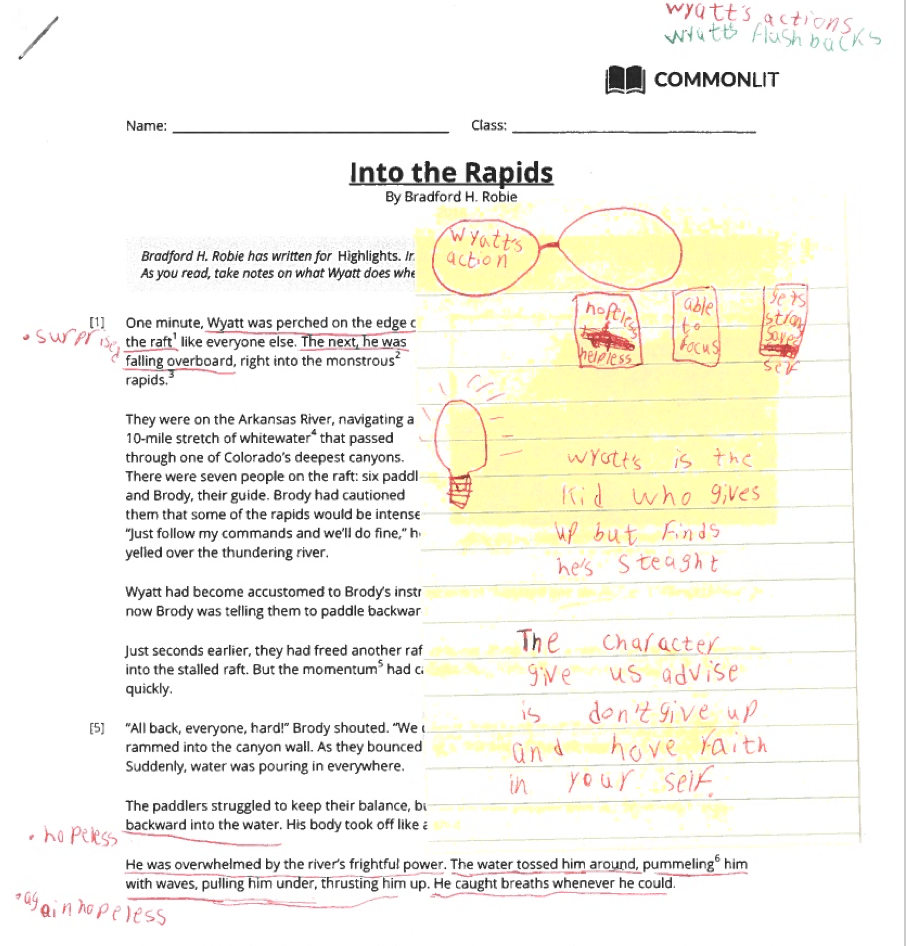 wyatt's actions
wyatt's flushbacks
COMMONLIT
Name: Class:
Into the Rapids
By Bradford H. Robie
Bradford H. Robie has written for Highlights. In
As you read, take notes on what Wyatt does whe
wyatt's
action
hopeless
helpless
able
to
focus
gets
strong
saved
self
[1] One minute, Wyatt was perched on the edge o
• surprised
the raft1 like everyone else. The next, he was
falling overboard, right into the monstrous2
rapids.3
They were on the Arkansas River, navigating a
10-mile stretch of whitewater4 that passed
through one of Colorado's deepest canyons.
There were seven people on the raft: six paddl
and Brody, their guide. Brody had cautioned
them that some of the rapids would be intense
"Just follow my commands and we'll do fine," h
yelled over the thundering river.
Wyatt had become accustomed to Brody's instr
now Brody was telling them to paddle backwar
Just seconds earlier, they had freed another raf
into the stalled raft. But the momentum5 had c
quickly.
[5] "All back, everyone, hard!" Brody shouted. "We
rammed into the canyon wall. As they bounced
Suddenly, water was pouring in everywhere.
The paddlers struggled to keep their balance, bu
backward into the water. His body took off like a
wyatts is the
kid who gives
up but finds
he's steaght
The character
give us advise
is don't give up
and have faith
in your self.
• hopeless
He was overwhelmed by the river's frightful power. The water tossed him around, pummeling6 him
with waves, pulling him under, thrusting him up. He caught breaths whenever he could.
• again hopeless